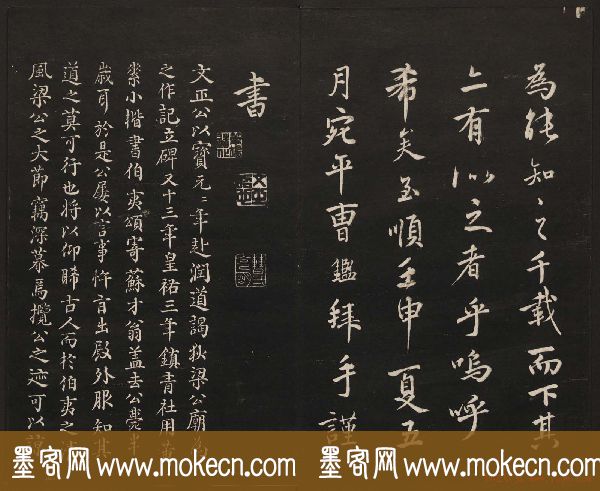 為能知之千載而下其
亦有似之者乎嗚呼
希矣至順壬申夏五
月宛平曹鑑拜手謹
書
文正公以寶元二年赴潤道謁狄梁公廟為
之作記立碑又十三年皇祐三年鎮青社用黃
素小楷書伯夷頌寄蘇才翁盖去公薨半
歲耳於是公屢以言事忤旨出殿外服知其
道之莫可行也將以仰睎古人而於伯夷之清
風梁公之大節竊深慕焉攬公之迹可以
墨客网 www.mokecn.com 墨客网 www.mokecn.com